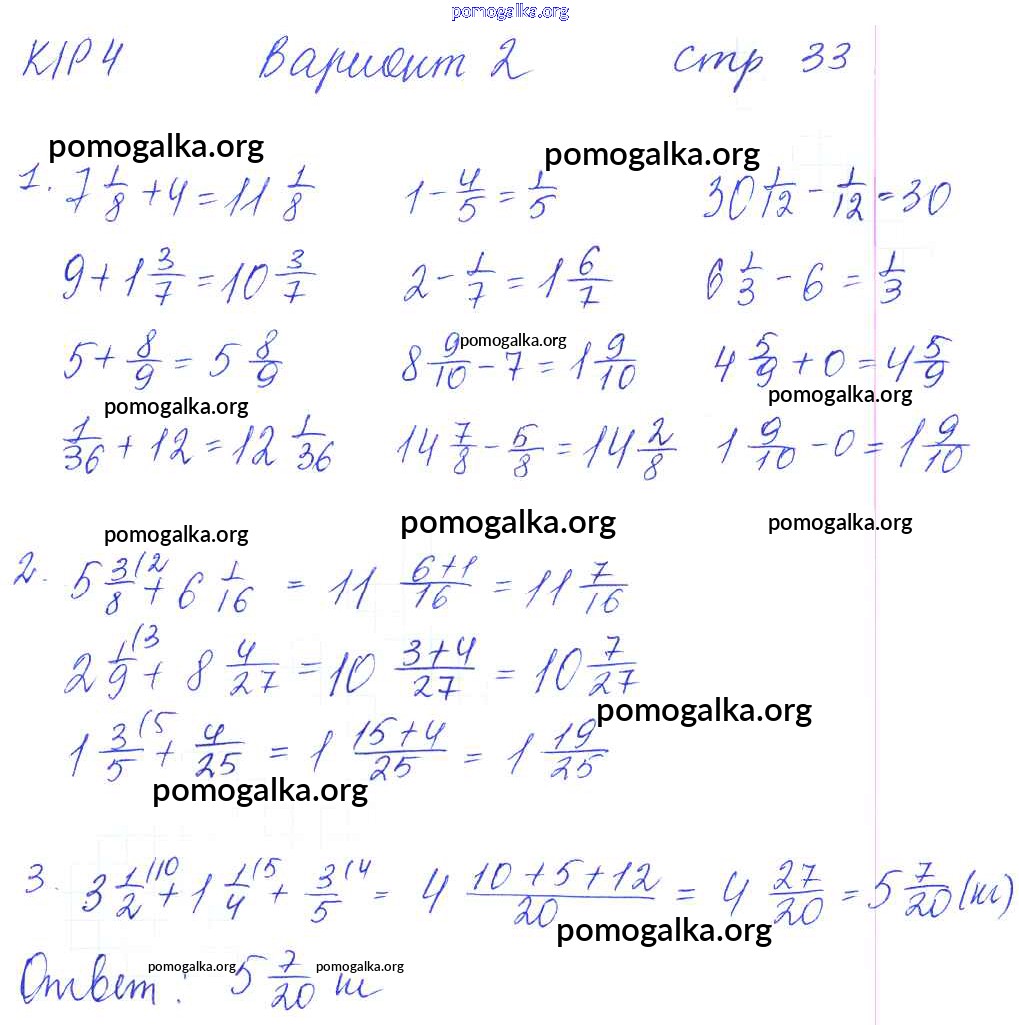 pomogalka.org
К/Р 4 Вариант 2 стр 33
pomogalka.org pomogalka.org
1. 7 1/8 + 4 = 11 1/8 1 - 4/5 = 1/5 30 1/12 - 1/12 = 30
9 + 1 3/7 = 10 3/7 2 - 1/7 = 1 6/7 6 1/3 - 6 = 1/3
pomogalka.org
5 + 8/9 = 5 8/9 8 9/10 - 7 = 1 9/10 4 5/9 + 0 = 4 5/9
pomogalka.org pomogalka.org
1/36 + 12 = 12 1/36 14 7/8 - 5/8 = 14 2/8 1 9/10 - 0 = 1 9/10
pomogalka.org pomogalka.org pomogalka.org
2. 5 3/8 (2 + 6 1/16 = 11 6+1/16 = 11 7/16
2 1/9 (3 + 8 4/27 = 10 3+4/27 = 10 7/27
pomogalka.org
1 3/5 (5 + 4/25 = 1 15+4/25 = 1 19/25
pomogalka.org
3. 3 1/2 (10 + 1 1/4 (5 + 3/5 (4 = 4 10+5+12/20 = 4 27/20 = 5 7/20 (м)
pomogalka.org
Ответ: 5 7/20 м
pomogalka.org pomogalka.org